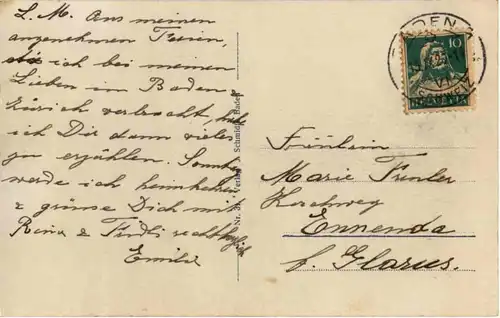 L. M. Aus meinen
angenehmen Ferien,
die ich bei meinen
Lieben in Baden &
Zürich verbracht, habe
ich Dir dann vieles
zu erzählen. Sonntag
werde ich heimkehren
& grüsse Dich mit
Rosa & Fridli recht herzlich
Emilie
Verlag A. Schmidt, Baden
BADEN
SCHWEIZ
10
HELVETIA
Fräulein
Marie
Kirchweg
Ennenda
b. Glarus.